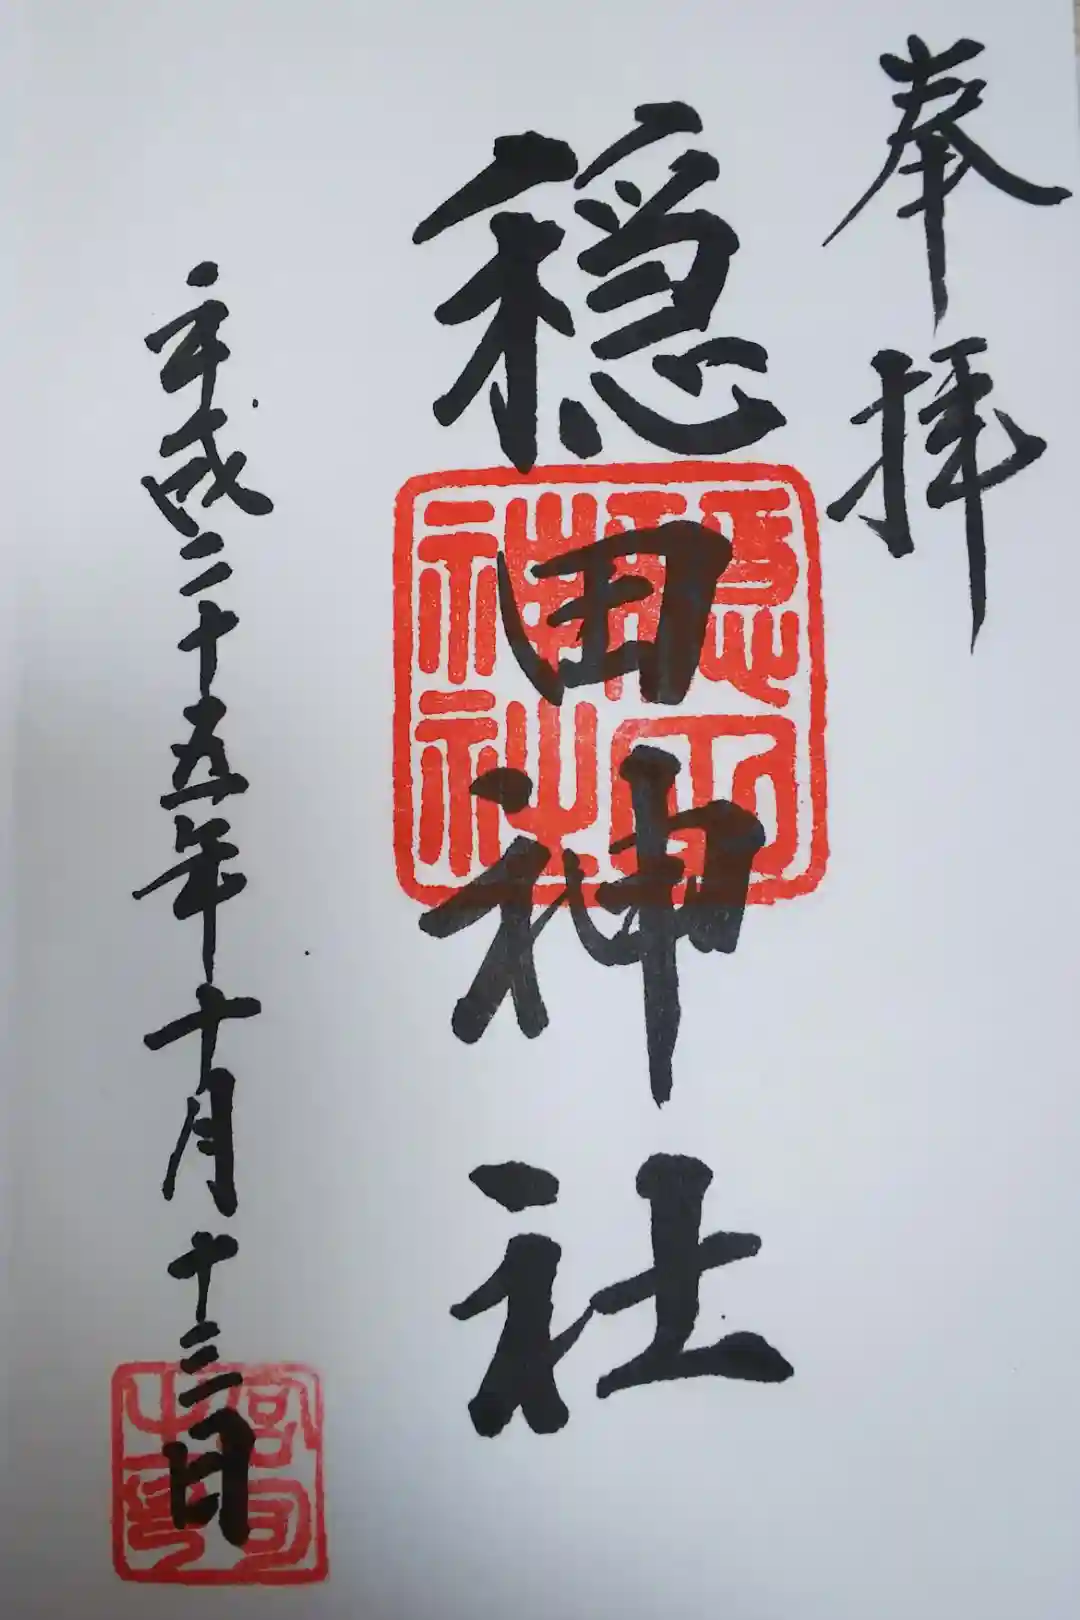 奉拝
穏田神社
平成二十五年十月十三日
穏田神社
宮司之印